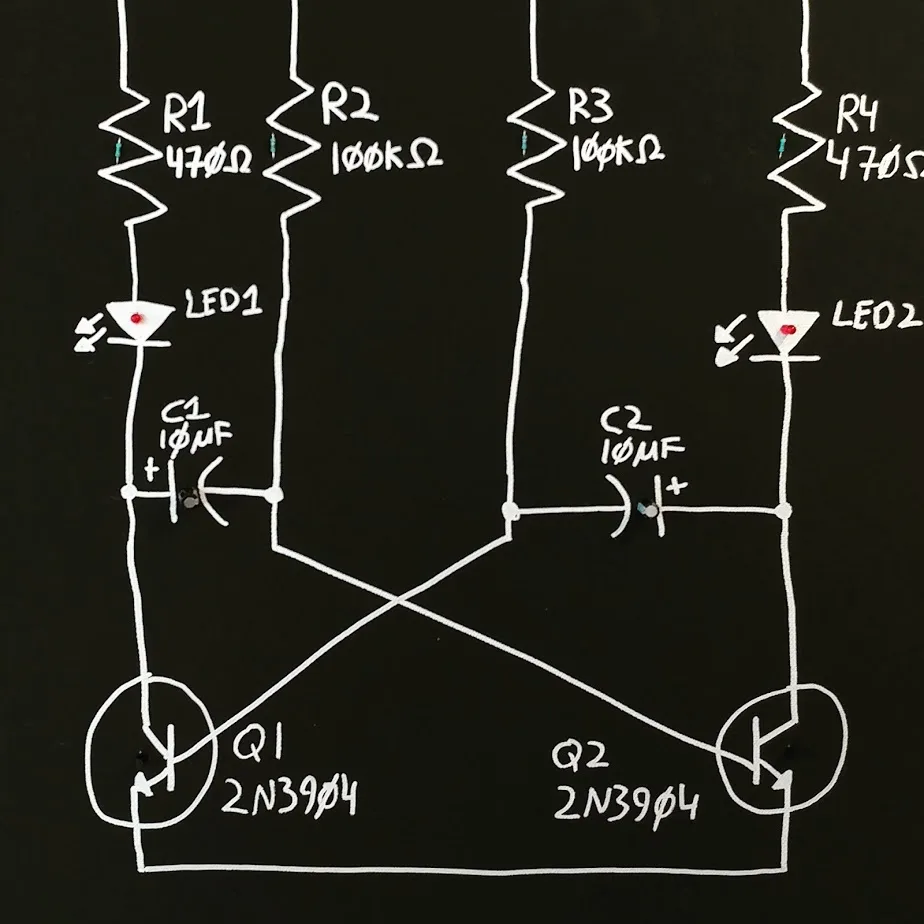 R1
470Ω
R2
100KΩ
R3
100KΩ
R4
470Ω
LED1
LED2
C1
10µF
+
C2
10µF
+
Q1
2N3904
Q2
2N3904